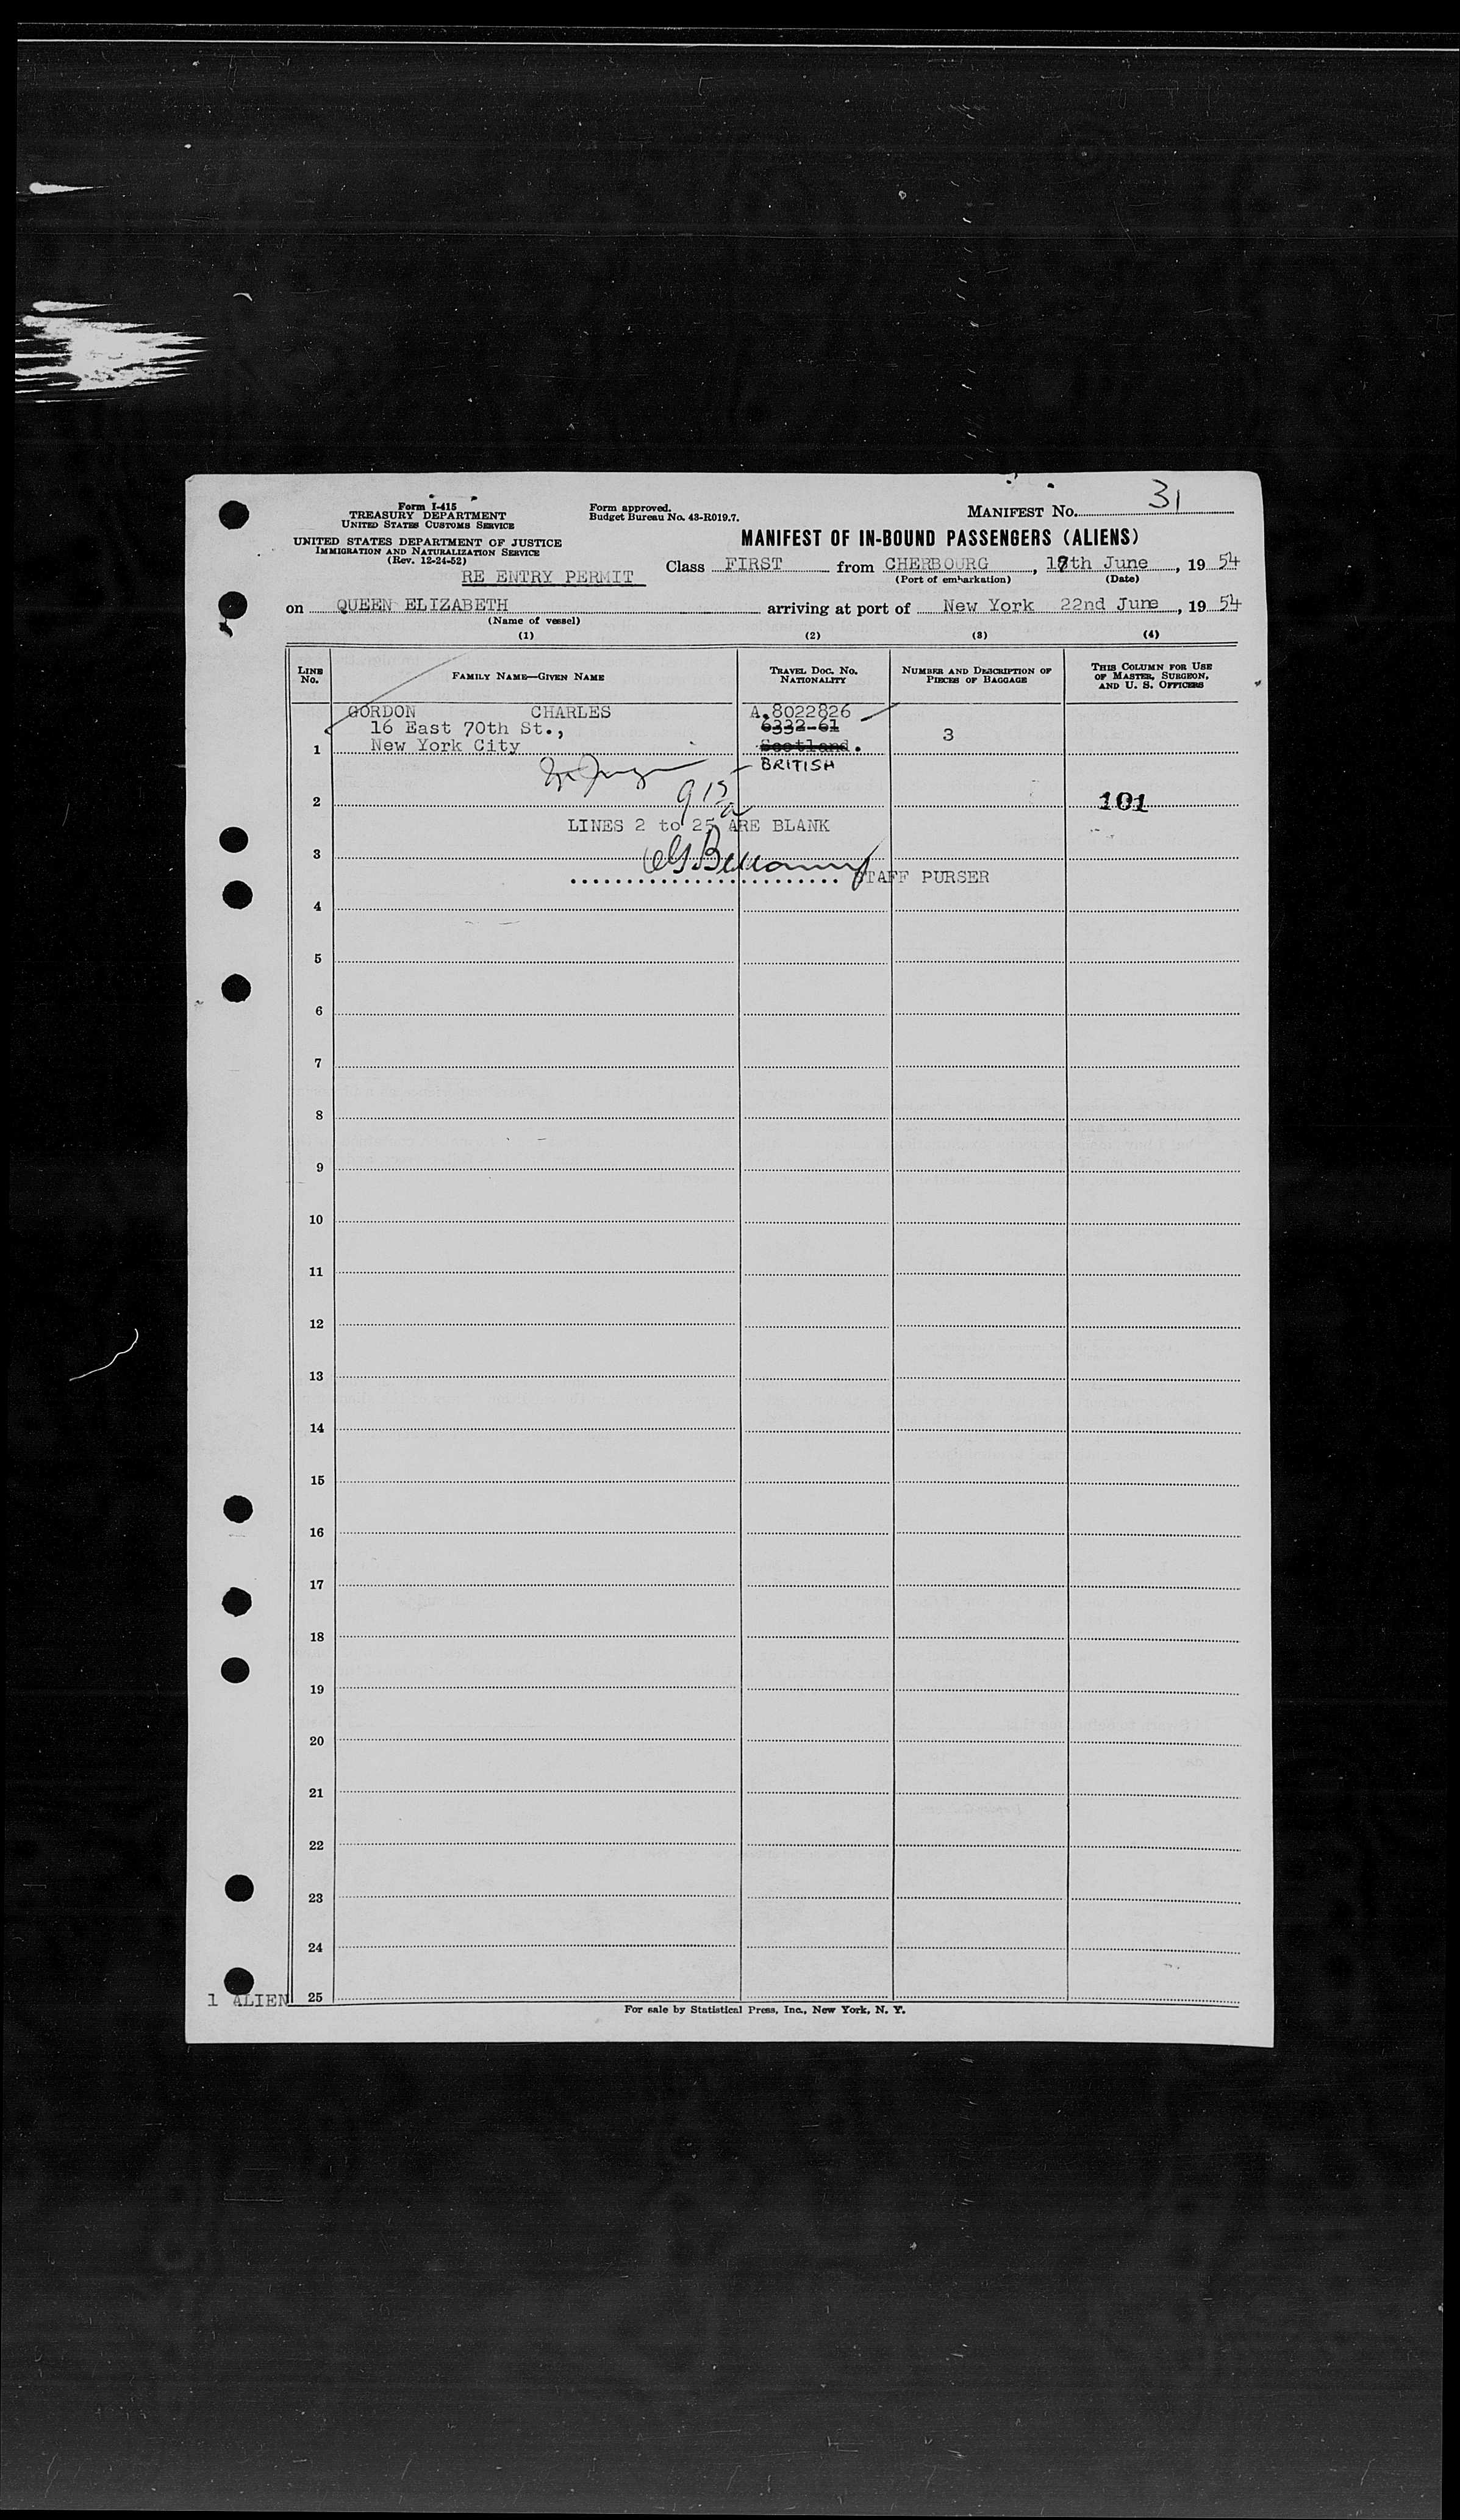 Form I-415
TREASURY DEPARTMENT
UNITED STATES CUSTOMS SERVICE
UNITED STATES DEPARTMENT OF JUSTICE
IMMIGRATION AND NATURALIZATION SERVICE
(Rev. 12-24-52)
RE ENTRY PERMIT
Form approved.
Budget Bureau No. 43-R019.7.
MANIFEST No. 31
MANIFEST OF IN-BOUND PASSENGERS (ALIENS)
Class FIRST from CHERBOURG, 17th June, 1954
(Port of embarkation) (Date)
on QUEEN ELIZABETH arriving at port of New York 22nd June, 1954
(Name of vessel)
(1) (2) (3) (4)
LINE No. FAMILY NAME—GIVEN NAME TRAVEL DOC. No. NATIONALITY NUMBER AND DESCRIPTION OF PIECES OF BAGGAGE THIS COLUMN FOR USE OF MASTER, SURGEON, AND U. S. OFFICERS
GORDON CHARLES A.8022826
16 East 70th St., 6332-61
1 New York City Scotland. 3
BRITISH
915
2 101
LINES 2 to 25 ARE BLANK
3
STAFF PURSER
4
5
6
7
8
9
10
11
12
13
14
15
16
17
18
19
20
21
22
23
24
1 ALIEN 25
For sale by Statistical Press, Inc., New York, N. Y.